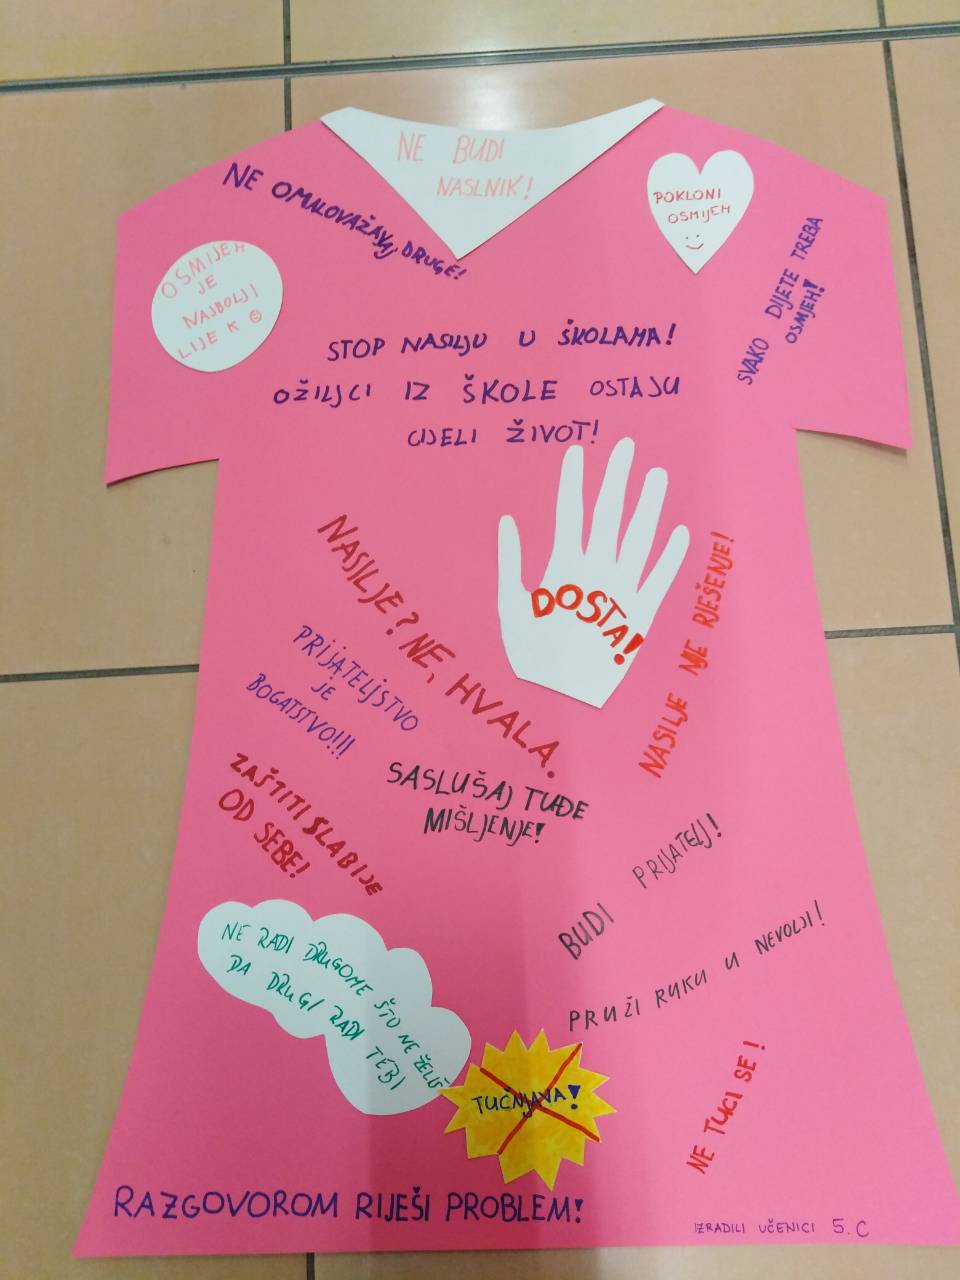 NE BUDI
NASLNIK!
NE OMALOVAŽAVAJ DRUGE!
POKLONI
OSMIJEH
OSMIJEH
JE
NAJBOLJI
LIJEK
SVAKO DIJETE TREBA
OSMJEH!
STOP NASILJU U ŠKOLAMA!
OŽILJCI IZ ŠKOLE OSTAJU
CIJELI ŽIVOT!
DOSTA!
NASILJE? NE, HVALA.
NASILJE NIJE RJEŠENJE!
PRIJATELJSTVO
JE
BOGATSTVO!!!
SASLUŠAJ TUĐE
MIŠLJENJE!
ZAŠTITI SLABIJE
OD SEBE!
BUDI PRIJATELJ!
NE RADI DRUGOME ŠTO NE ŽELIŠ
DA DRUGI RADI TEBI
PRUŽI RUKU U NEVOLJI!
TUČNJAVA!
NE TUCI SE!
RAZGOVOROM RIJEŠI PROBLEM!
IZRADILI UČENICI 5.C